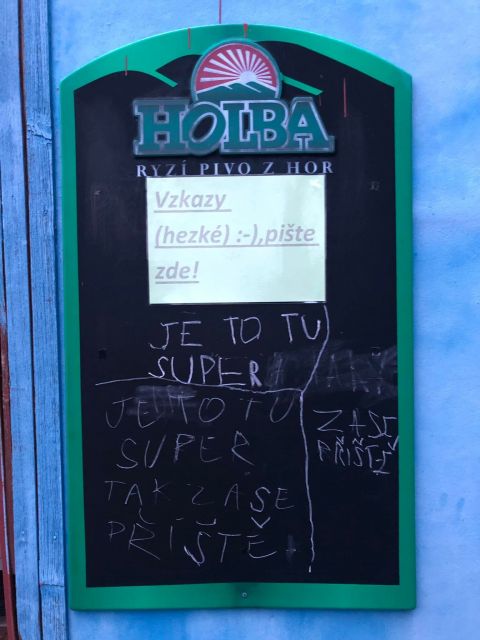 HOLBA
RYZÍ PIVO Z HOR
Vzkazy
(hezké) :-),pište
zde!
JE TO TU
SUPER
JE TO TU
SUPER
TAK ZASE
PŘÍŠTĚ
ZASE
PŘÍŠTĚ